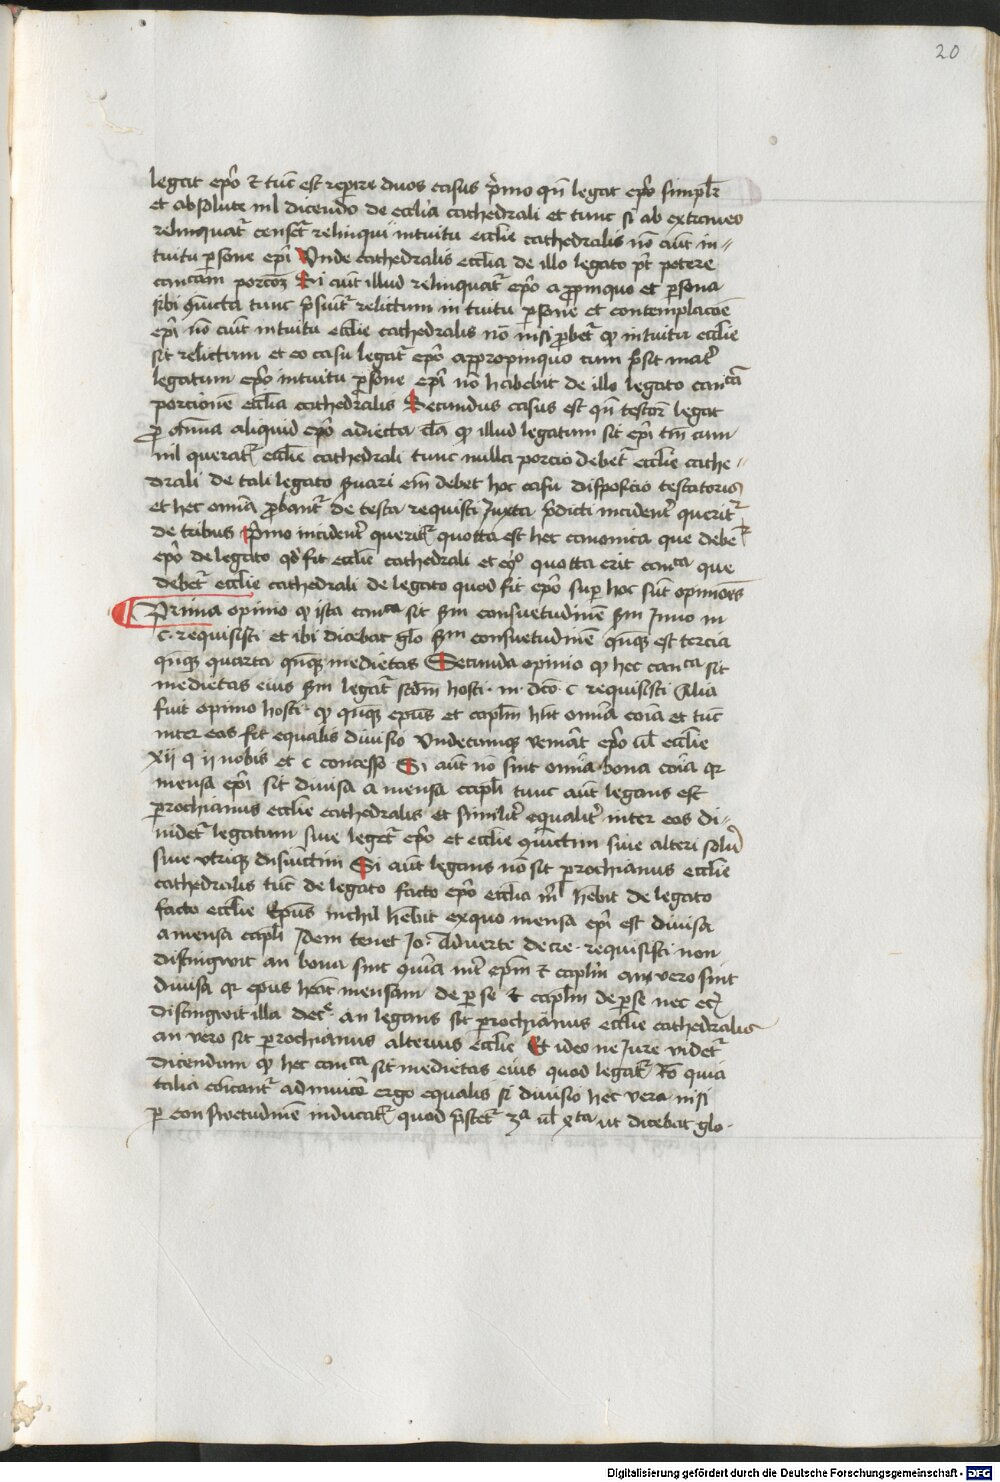 20
legat ep̄o ⁊ tūc est reperire duos casus p̄imo qn̄ legat ep̄o simplr̄
et absolute nil dicendo de ecc̄lia cathedrali et tunc si ab extraneo
relinquat᷑ censet᷑ relinqui intuitu ecc̄lie cathedralis nō aūt in⸗
tuitu ꝑsone ep̄i Vnde cathedralis ecc̄lia de illo legato pōt petere
canicam porcōeȝ Si aūt illud relinquat᷑ ep̄o a ꝓpinquo et ꝑsona
sibi ꝯiūcta tunc p̄sūit᷑ relictum in tuitu ꝑsone et contemplacōe
ep̄i nō aūt intuitu ecc̄lie cathedralis nō nisi ꝓbet᷑ ꝙ intuitu ecc̄lie
sit relictum et eo casu legat᷑ ep̄o appropinquo cum p̄sit mat᷑
legatum ep̄o intuitu ꝑsone ep̄i nō habebit de illo legato canicā
porcionē ecc̄lia cathedralis Secundus casus est qn̄ testor legat
aliquid ep̄o adiecta cla ꝙ illud legatum sit ep̄i tm̄ cum
nil querat᷑ ecc̄lie cathedrali tunc nulla porcio debet᷑ ecc̄lie cathe⸗
drali de tali legato ẜuari em̄ debet hoc casu disposicio testatoris
et hec om̄ia ꝓbant᷑ de testa requisisti Juxta p̄dicti incident᷑ querit᷑
de tribus Primo incident᷑ querit᷑ quotta est hec canonica que debet᷑
ep̄o de legato qd̄ fit ecc̄lie cathedrali et eqo quotta erit canica que
debet᷑ ecc̄lie cathedrali de legato quod fit ep̄o sup hoc sūt opiniones
Prima opinio ꝙ ista canica sit ẜm consuetudinē ẜm Inno in
c. requisisti et ibi dicebat glo ẜm consuetudinē qn̄qȝ est tercia
qn̄qȝ quarta qn̄qȝ medietas Secunda opinio ꝙ hec canica sit
medietas eius ẜm legat᷑ scdm̄ hosti. in. dc̄o. c requisisti Alia
fuit opinio hosti. ꝙ qn̄qȝ ep̄us et capl̄m hn̄t om̄ia cōia et tūc
inter eos fit equalis diuisio vndecumqȝ veniāt ep̄o ul̄ ecc̄lie
xij q ij nobis et c concesso Si aūt nō sint om̄ia bona cōia qr
mensa ep̄i sit diuisa a mensa capl̄i tunc aūt legans est
ꝑrochianus ecc̄lie cathedralis et similit᷑ equalit᷑ inter eos di⸗
uidet᷑ legatum siue leget᷑ ep̄o et ecc̄lie ꝯiūctim siue alteri solū
siue vtriqȝ disiūctim Si aūt legans nō sit ꝑrochianus ecc̄lie
cathedralis tūc de legato facto ep̄o ecc̄lia nl̄ hēbit de legato
facto ecc̄lie Ep̄us nichil hēbit exquo mensa ep̄i est diuisa
a mensa capl̄i Idem tenet Jo. Aduerte decre. requisisti non
distingwit an bona sint ꝯmūia int᷑ ep̄m ⁊ capl̄m an vero sint
diuisa qr ep̄us hēat mensam de ꝑ se ⁊ capl̄m de ꝑ se nec ec̄
distingwit illa dec᷑. an legans sit ꝑrochianus ecc̄lie cathedralis
an vero sit ꝑrochianus alterius ecc̄lie Et ideo ne Jure videt᷑
dicendum ꝙ hec canica sit medietas eius quod legat᷑ Ro quia
talia cōicant᷑ adinuicē ergo equalis fi diuisio hec vera nisi
ꝑ conswetudinē inducat᷑ quod p̄stet᷑ 3a ul̄ 4ta ut dicebat glo.
Digitalisierung gefördert durch die Deutsche Forschungsgemeinschaft - DFG